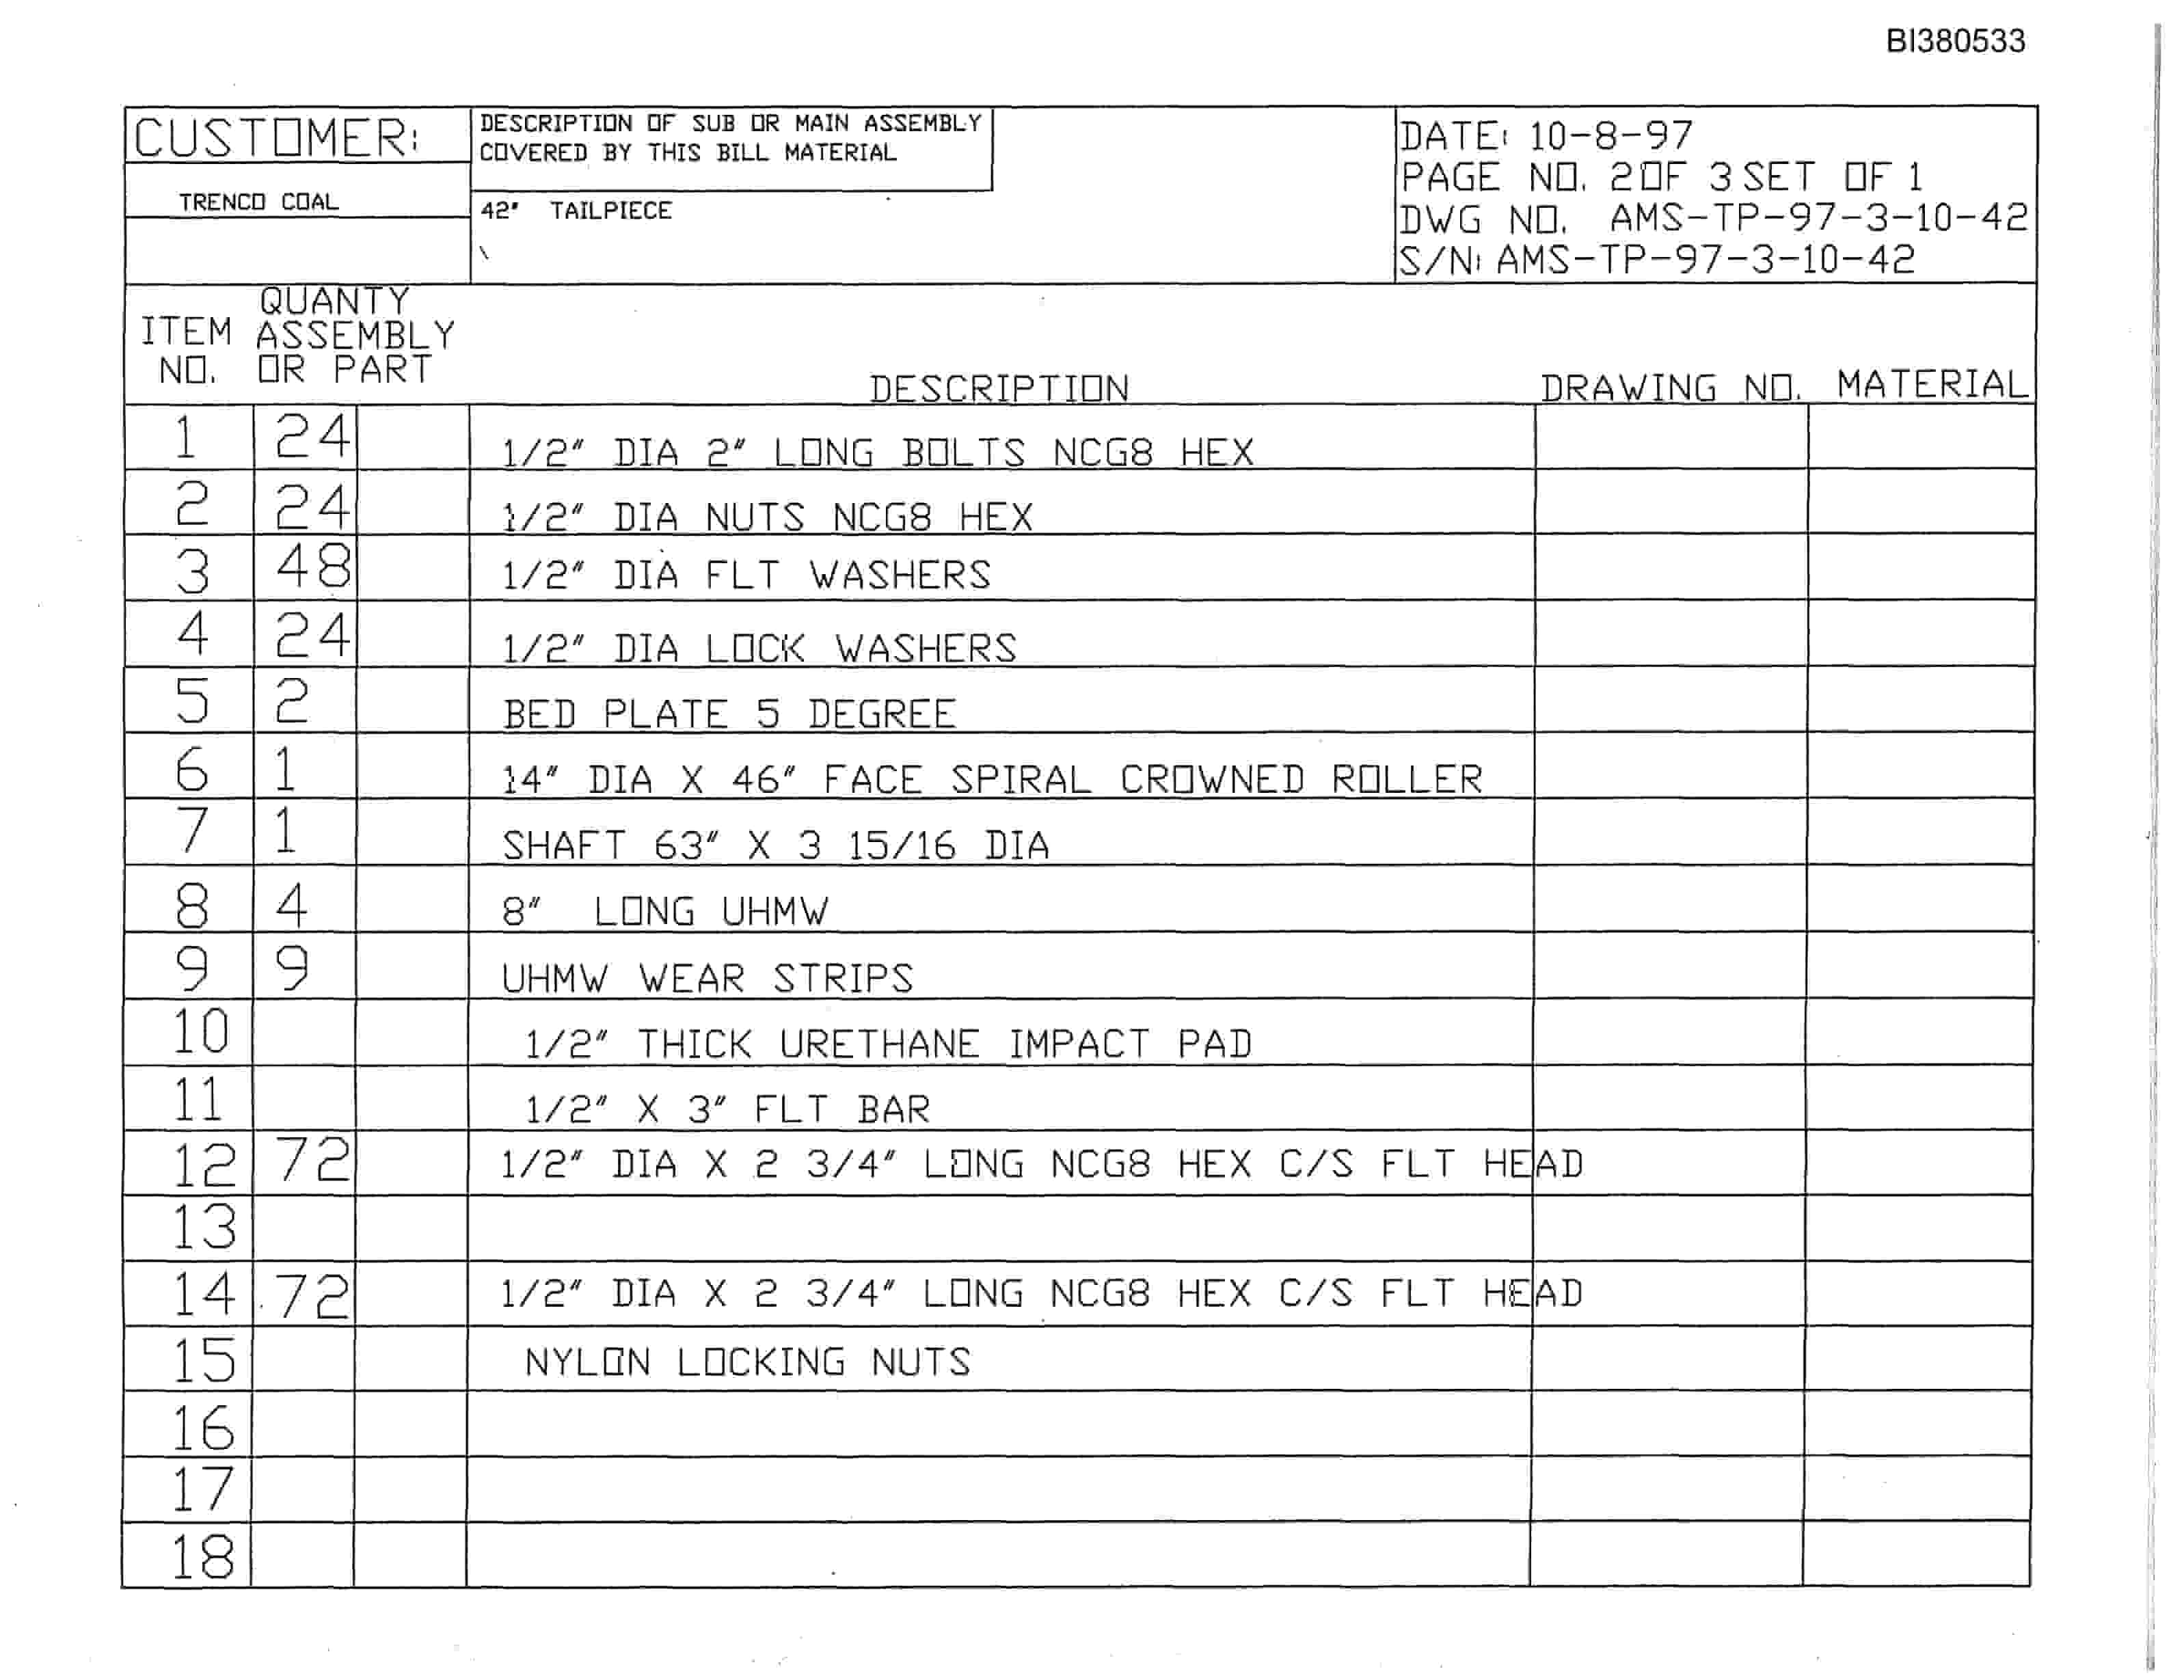 BI380533
CUSTOMER:
TRENCO COAL
DESCRIPTION OF SUB OR MAIN ASSEMBLY
COVERED BY THIS BILL MATERIAL
42" TAILPIECE
DATE: 10-8-97
PAGE NO. 2 OF 3 SET OF 1
DWG NO. AMS-TP-97-3-10-42
S/N: AMS-TP-97-3-10-42
ITEM NO. QUANTY ASSEMBLY OR PART DESCRIPTION DRAWING NO. MATERIAL
1 24 1/2" DIA 2" LONG BOLTS NCG8 HEX
2 24 1/2" DIA NUTS NCG8 HEX
3 48 1/2" DIA FLT WASHERS
4 24 1/2" DIA LOCK WASHERS
5 2 BED PLATE 5 DEGREE
6 1 14" DIA X 46" FACE SPIRAL CROWNED ROLLER
7 1 SHAFT 63" X 3 15/16 DIA
8 4 8" LONG UHMW
9 9 UHMW WEAR STRIPS
10 1/2" THICK URETHANE IMPACT PAD
11 1/2" X 3" FLT BAR
12 72 1/2" DIA X 2 3/4" LONG NCG8 HEX C/S FLT HEAD
13
14 72 1/2" DIA X 2 3/4" LONG NCG8 HEX C/S FLT HEAD
15 NYLON LOCKING NUTS
16
17
18